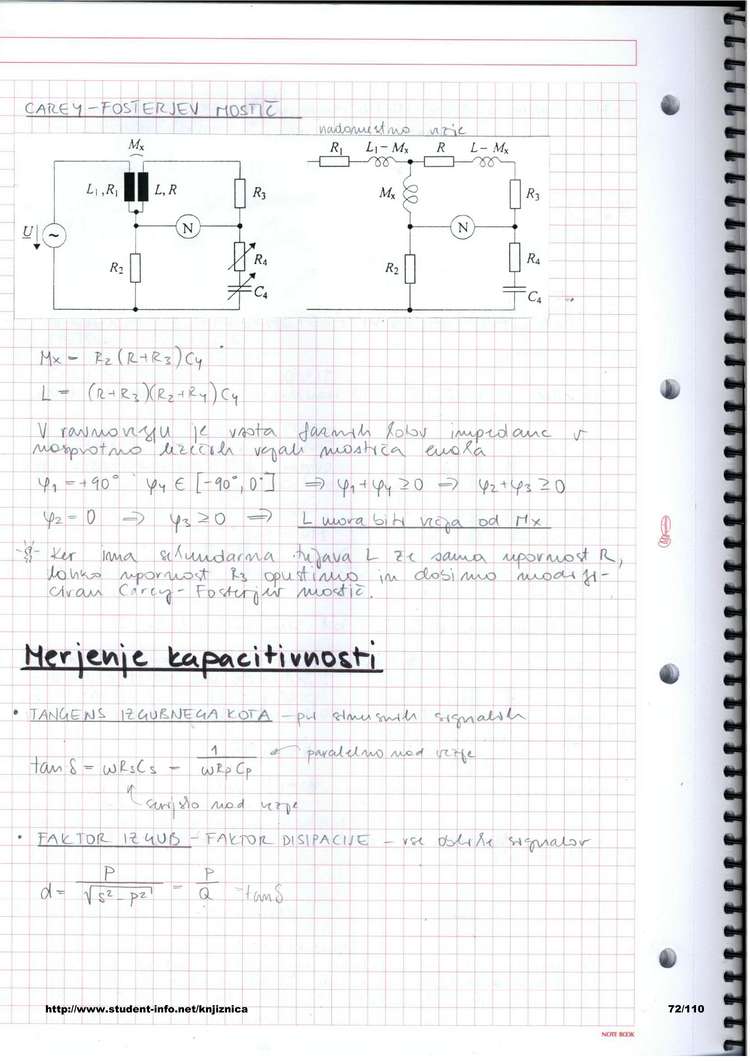 CAREY-FOSTERJEV MOSTIČ
nadomestno vezje
Mx
L1, R1 L, R
R3
U
~
N
R2
R4
C4
R1 L1 - Mx R L - Mx
Mx
R3
N
R2
R4
C4
Mx = R2 (R+R3) C4
L = (R+R3)(R2+R4) C4
V ravnovesju je vsota faznih kotov impedanc v
nasprotno ležečih vejah mostiča enaka
φ1 = +90° φ4 ∈ [-90°, 0°] ⇒ φ1+φ4 ≥ 0 ⇒ φ2+φ3 ≥ 0
φ2 = 0 ⇒ φ3 ≥ 0 ⇒ L mora biti večja od Mx
Ker ima sekundarna tuljava L že sama upornost R,
lahko upornost R3 opustimo in dobimo modifi-
ciran Carey-Fosterjev mostič.
Merjenje kapacitivnosti
• TANGENS IZGUBNEGA KOTA - pri sinusnih signalih
tan δ = ωRsCs = 1/ωRpCp ← paralelno nad. vezje
serijsko nad. vezje
• FAKTOR IZGUB - FAKTOR DISIPACIJE - vse oblike signalov
d = P/√(S²-P²) = P/Q = tan δ
http://www.student-info.net/knjiznica 72/110
NOTE BOOK